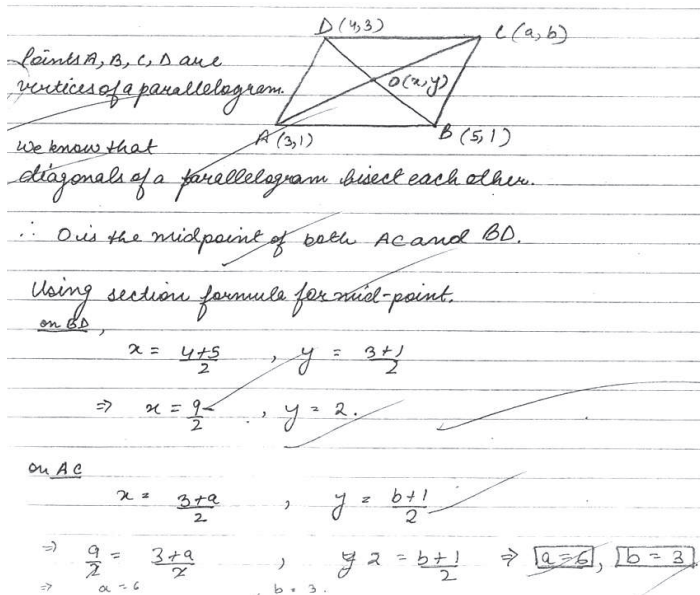 D(4,3) C(a,b)
Points A, B, C, D are
vertices of a parallelogram.
O(x,y)
A(3,1) B(5,1)
we know that
diagonals of a parallelogram bisect each other.
∴ O is the midpoint of both AC and BD.
Using section formula for mid-point.
on BD,
x = 4+5/2 , y = 3+1/2
⇒ x = 9/2 , y = 2.
on AC
x = 3+a/2 , y = b+1/2
⇒ 9/2 = 3+a/2 , y 2 = b+1/2 ⇒ a=6, b=3
⇒ a=6 . b=3.